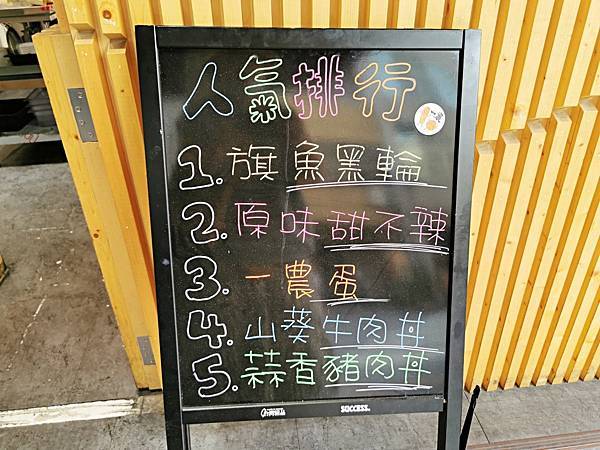 人氣排行
1. 旗魚黑輪
2. 原味甜不辣
3. 一農蛋
4. 山葵牛肉丼
5. 蒜香豬肉丼
SUCCESS